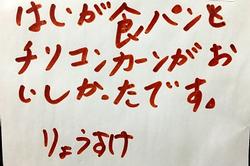 はじが食パンと
チリコンカーンがお
いしかったです。
りょうすけ